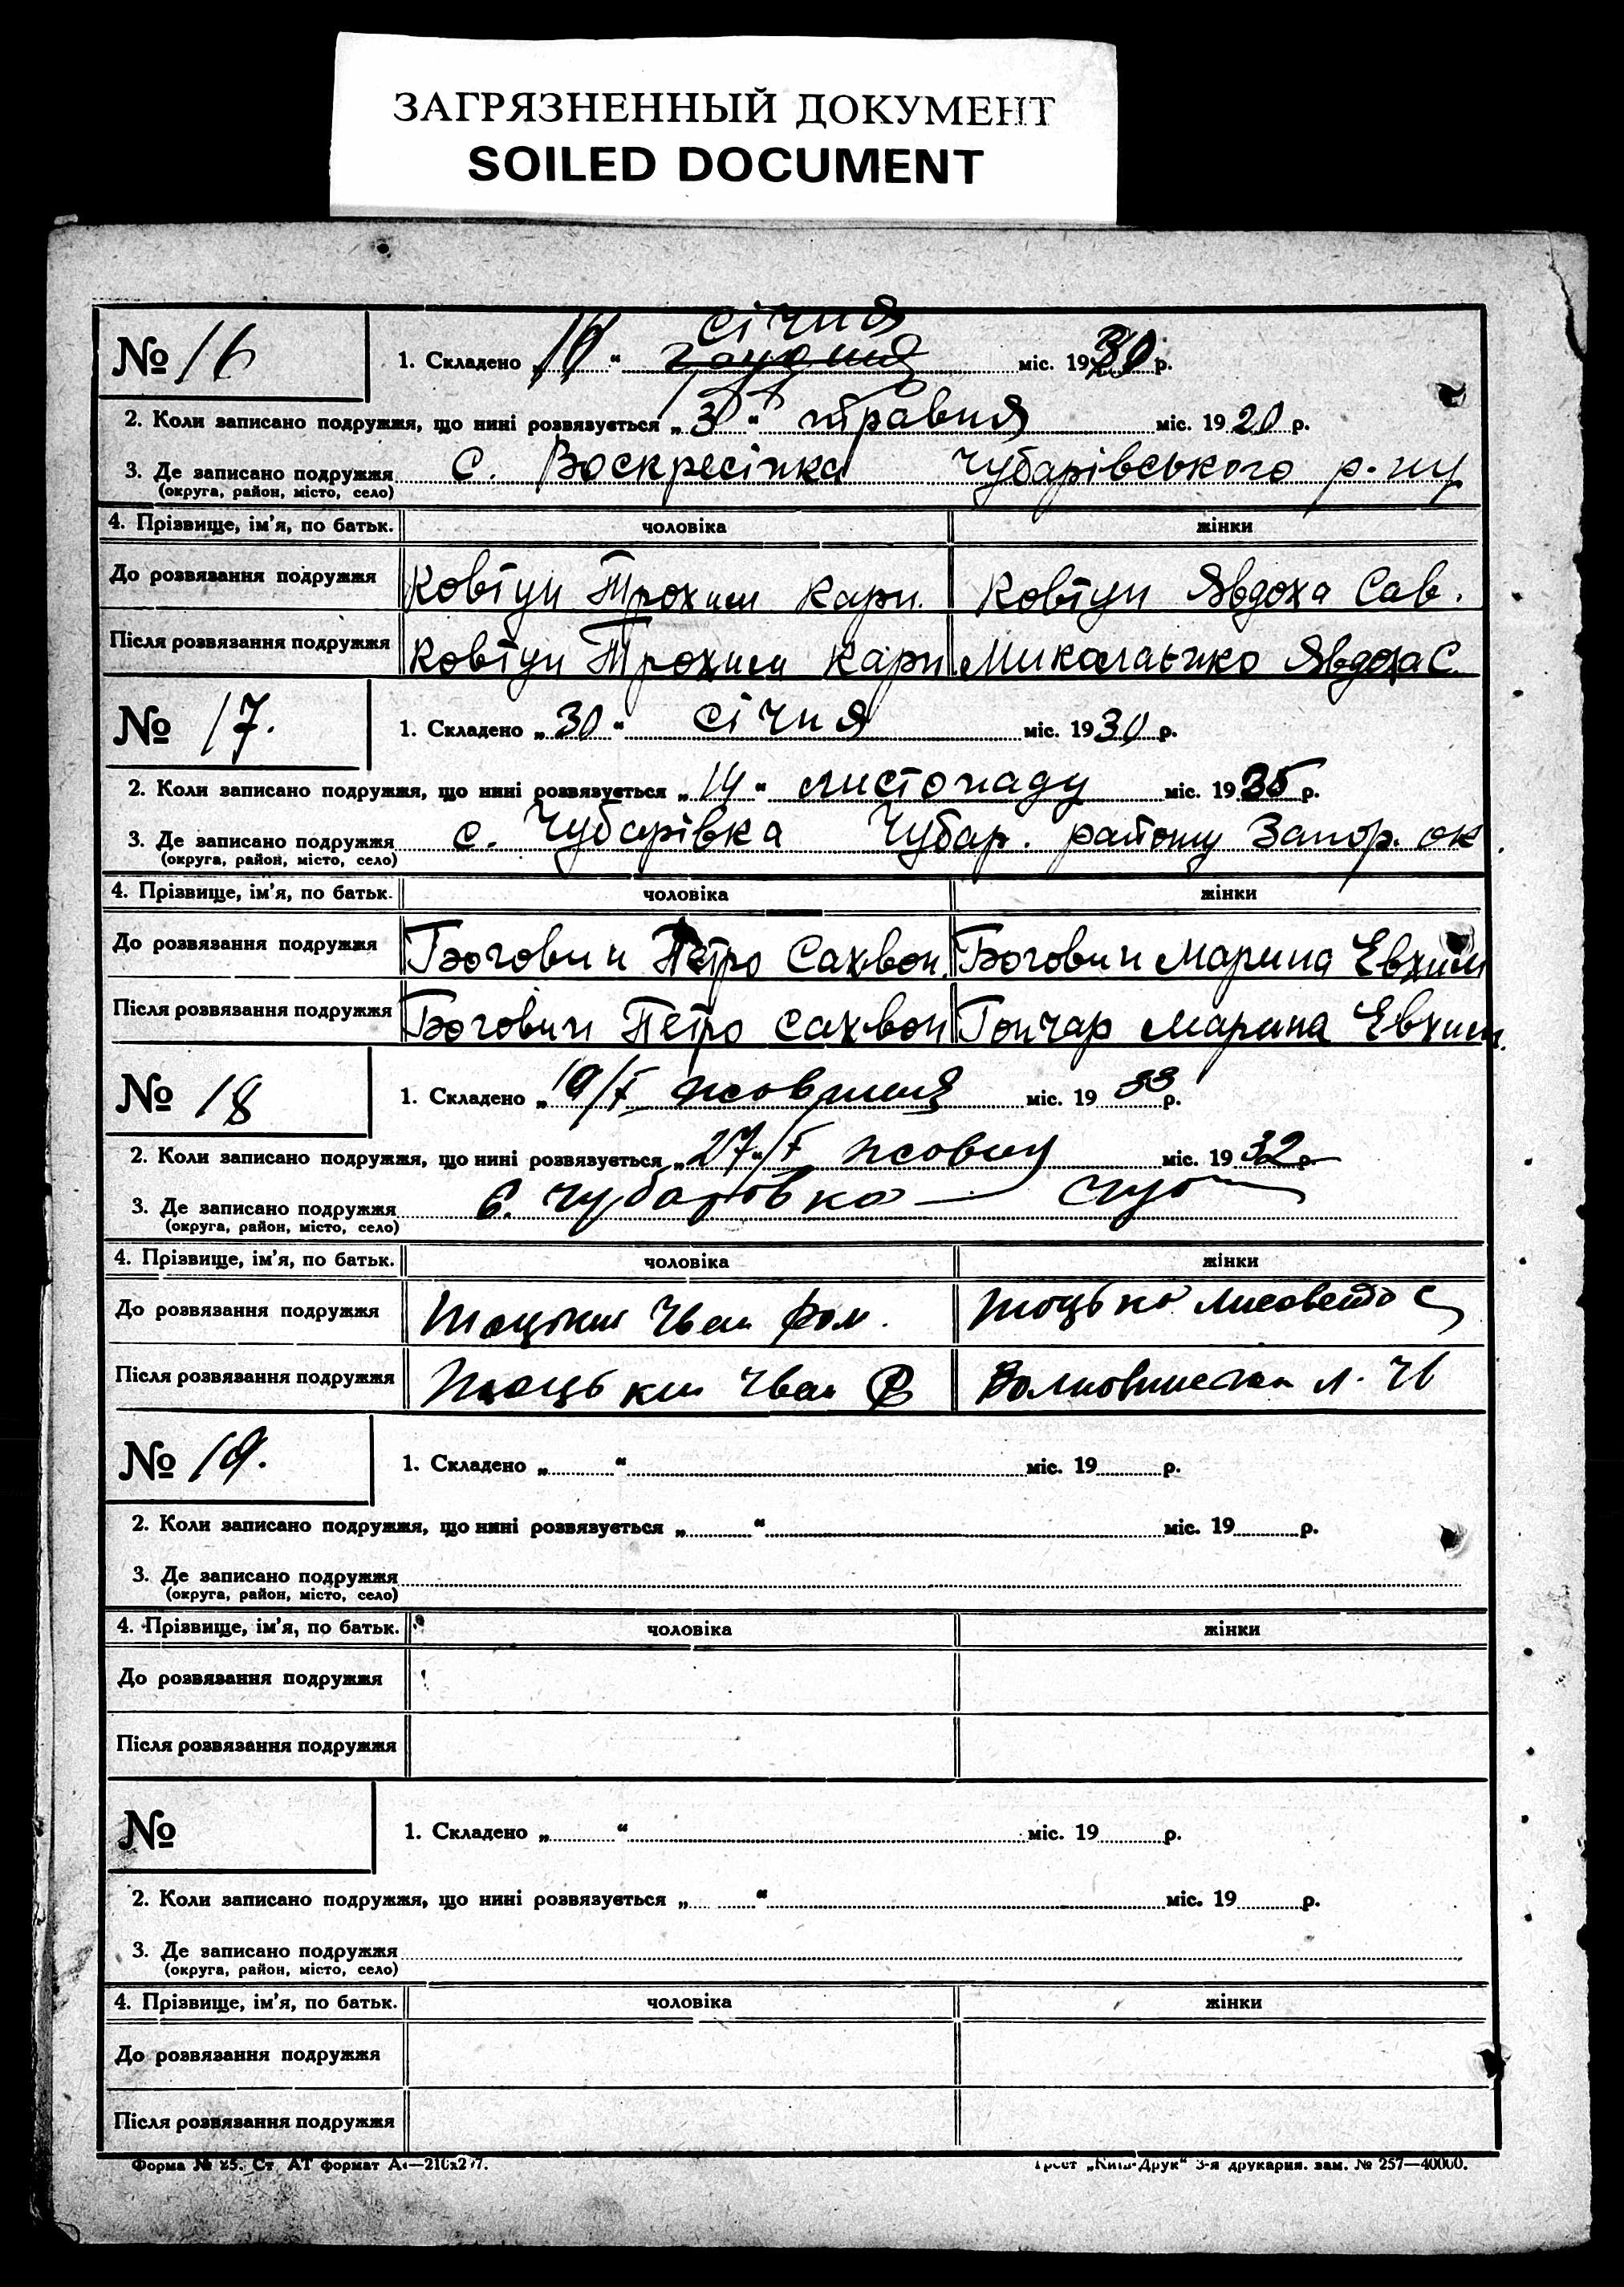 ЗАГРЯЗНЕННЫЙ ДОКУМЕНТ
SOILED DOCUMENT
№ 16
1. Складено „16“ січня міс. 1930 р.
2. Коли записано подружжя, що нині розвязується „30“ травня міс. 1920 р.
3. Де записано подружжя с. Воскресінка Чубарівського р-ну
(округа, район, місто, село)
4. Прізвище, ім'я, по батьк. чоловіка жінки
До розвязання подружжя Ковтун Трохим Карп. Ковтун Явдоха Сав.
Після розвязання подружжя Ковтун Трохим Карп Миколаєнко Явдоха С.
№ 17.
1. Складено „30“ січня міс. 1930 р.
2. Коли записано подружжя, що нині розвязується „14“ листопаду міс. 19 р.
3. Де записано подружжя с. Чубарівка Чубар. району Запор. ок.
(округа, район, місто, село)
4. Прізвище, ім'я, по батьк. чоловіка жінки
До розвязання подружжя Богович Петро Сахвон. Богович Марина Евхим
Після розвязання подружжя Богович Петро Сахвон Гончар Марина Евхим.
№ 18
1. Складено „ міс. 1933 р.
2. Коли записано подружжя, що нині розвязується „27 міс. 1932 р.
3. Де записано подружжя с. Чубаровка
(округа, район, місто, село)
4. Прізвище, ім'я, по батьк. чоловіка жінки
До розвязання подружжя Иван
Після розвязання подружжя Иван Ф
№ 19.
1. Складено „ “ міс. 19 р.
2. Коли записано подружжя, що нині розвязується „ “ міс. 19 р.
3. Де записано подружжя
(округа, район, місто, село)
4. Прізвище, ім'я, по батьк. чоловіка жінки
До розвязання подружжя
Після розвязання подружжя
№
1. Складено „ “ міс. 19 р.
2. Коли записано подружжя, що нині розвязується „ “ міс. 19 р.
3. Де записано подружжя
(округа, район, місто, село)
4. Прізвище, ім'я, по батьк. чоловіка жінки
До розвязання подружжя
Після розвязання подружжя
Форма № 25. Ст. АТ формат А4—210х297. Трест „Київ-Друк“ 3-я друкарня. зам. № 257—40000.